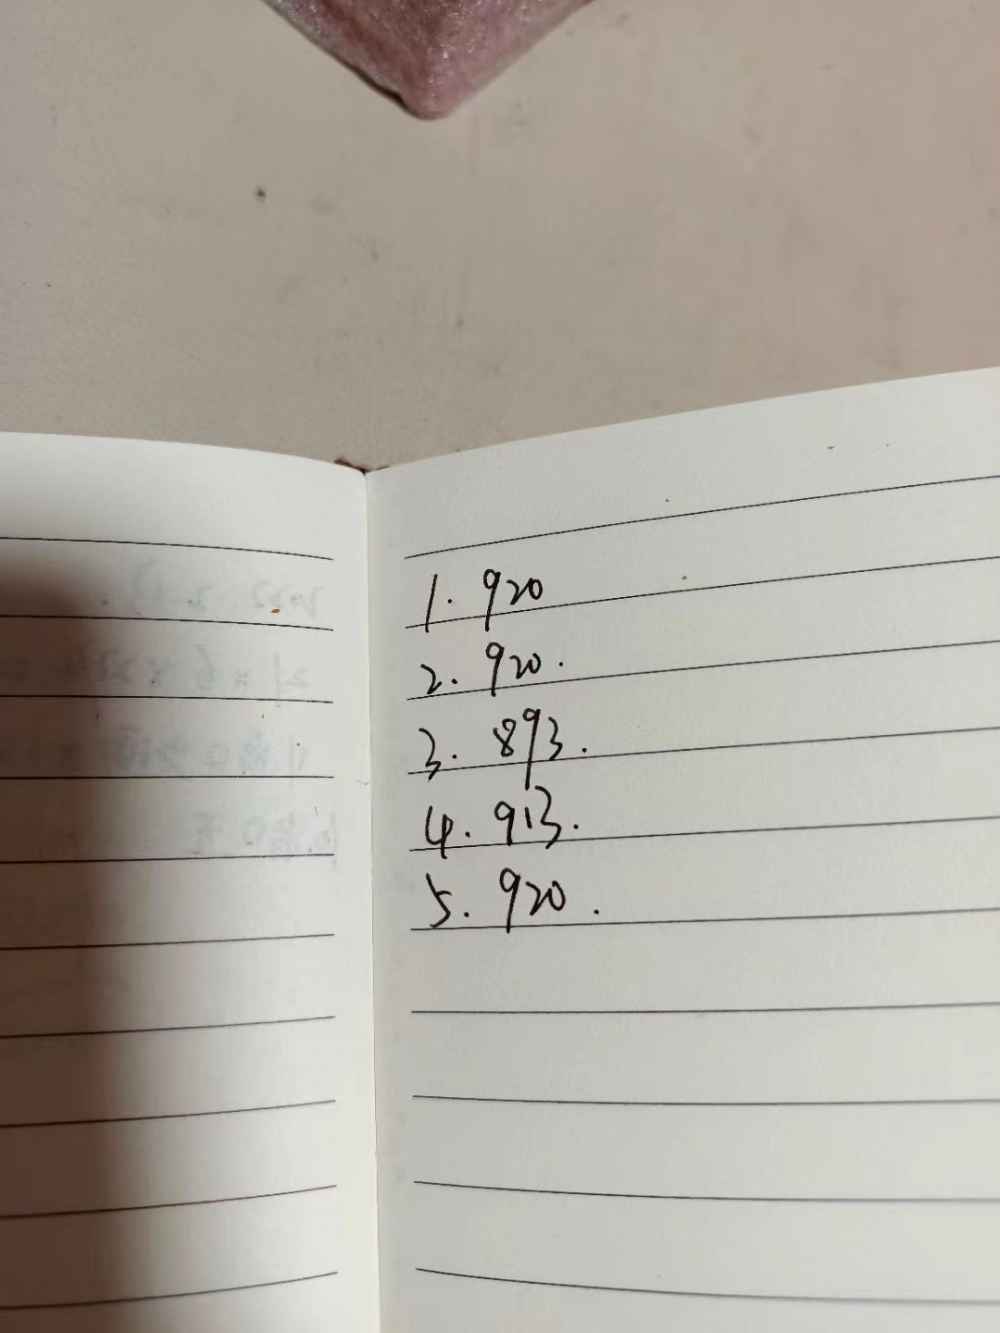 1. 920
2. 920.
3. 893.
4. 913.
5. 920.